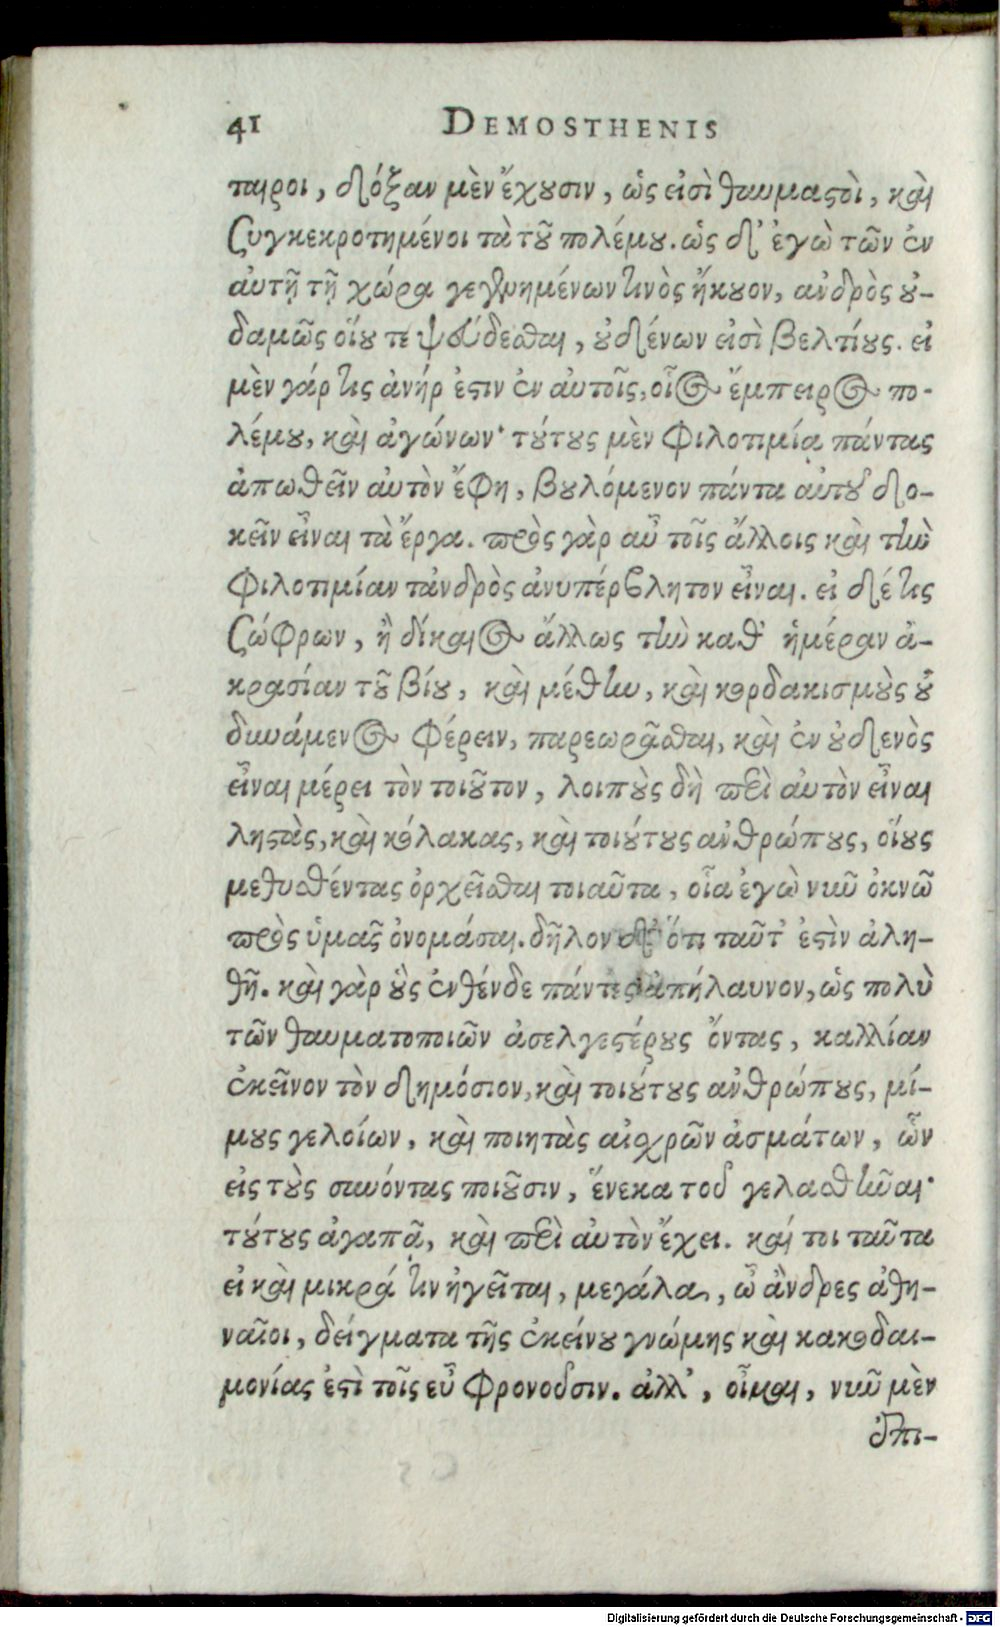 41 DEMOSTHENIS
ταιροι, δόξαν μὲν ἔχουσιν, ὡς εἰσὶ θαυμαστοὶ, καὶ
συγκεκροτημένοι τὰ τοῦ πολέμου. ὡς δ' ἐγὼ τῶν ἐν
αὐτῇ τῇ χώρα γεγενημένων τινὸς ἤκουον, ἀνδρὸς οὐ-
δαμῶς οἵου τε ψεύδεσθαι, οὐδένων εἰσὶ βελτίους. εἰ
μὲν γάρ τις ἀνήρ ἐστιν ἐν αὐτοῖς, οἷος ἔμπειρος πο-
λέμου, καὶ ἀγώνων· τούτους μὲν φιλοτιμίᾳ πάντας
ἀπωθεῖν αὐτὸν ἔφη, βουλόμενον πάντα αὑτοῦ δο-
κεῖν εἶναι τὰ ἔργα. πρὸς γὰρ αὖ τοῖς ἄλλοις καὶ τὴν
φιλοτιμίαν τἀνδρὸς ἀνυπέρβλητον εἶναι. εἰ δέ τις
σώφρων, ἢ δίκαιος ἄλλως τὴν καθ' ἡμέραν ἀ-
κρασίαν τοῦ βίου, καὶ μέθην, καὶ κορδακισμοὺς οὐ
δυνάμενος φέρειν, παρεωρᾶσθαι, καὶ ἐν οὐδενὸς
εἶναι μέρει τὸν τοιοῦτον, λοιποὺς δὴ περὶ αὐτὸν εἶναι
λῃστὰς, καὶ κόλακας, καὶ τοιούτους ἀνθρώπους, οἵους
μεθυσθέντας ὀρχεῖσθαι τοιαῦτα, οἷα ἐγὼ νῦν ὀκνῶ
πρὸς ὑμᾶς ὀνομάσαι. δῆλον δ' ὅτι ταῦτ' ἐστὶν ἀλη-
θῆ. καὶ γὰρ οὓς ἐνθένδε πάντες ἀπήλαυνον, ὡς πολὺ
τῶν θαυματοποιῶν ἀσελγεστέρους ὄντας, καλλίαν
ἐκεῖνον τὸν δημόσιον, καὶ τοιούτους ἀνθρώπους, μί-
μους γελοίων, καὶ ποιητὰς αἰσχρῶν ἀσμάτων, ὧν
εἰς τοὺς συνόντας ποιοῦσιν, ἕνεκα τοῦ γελασθῆναι·
τούτους ἀγαπᾷ, καὶ περὶ αὐτὸν ἔχει. καί τοι ταῦτα
εἰ καὶ μικρά τιν ἡγεῖται, μεγάλα, ὦ ἄνδρες ἀθη-
ναῖοι, δείγματα τῆς ἐκείνου γνώμης καὶ κακοδαι-
μονίας ἐστὶ τοῖς εὖ φρονοῦσιν. ἀλλ', οἶμαι, νῦν μὲν
ἐπι-
Digitalisierung gefördert durch die Deutsche Forschungsgemeinschaft - DFG